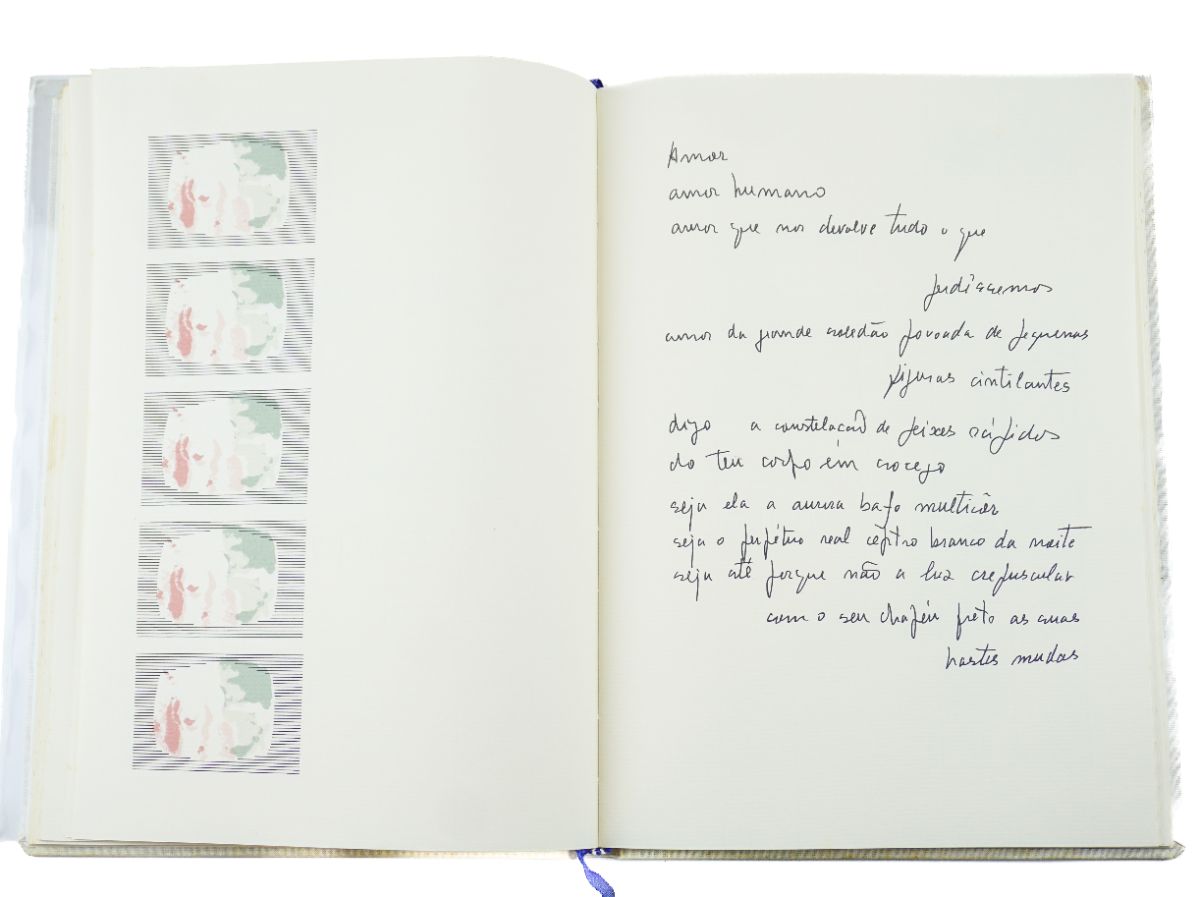 Amor
amor humano
amor que nos devolve tudo o que
perdêssemos
amor da grande solidão povoada de pequenas
figuras cintilantes
digo a constelação de peixes rápidos
do teu corpo em sossego
seja ela a aurora bafo multicôr
seja o perpétuo real céptro branco da noite
seja até porque não a luz crepuscular
com o seu chapéu preto as suas
hastes mudas